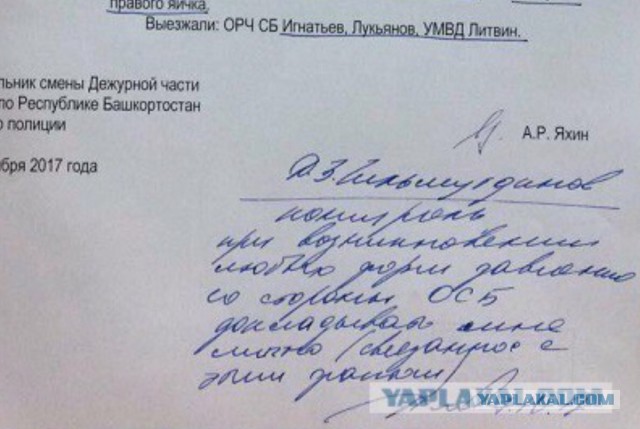 правого яичка.
Выезжали: ОРЧ СБ Игнатьев, Лукьянов, УМВД Литвин.
льник смены Дежурной части
по Республике Башкортостан
о полиции
А.Р. Яхин
бря 2017 года
контроль
при возникновении
любых форм давления
со стороны ОСБ
докладывать мне
лично (связанное с
этим фактом)
YAPLAKAL.COM
YAPLAKAL.COM